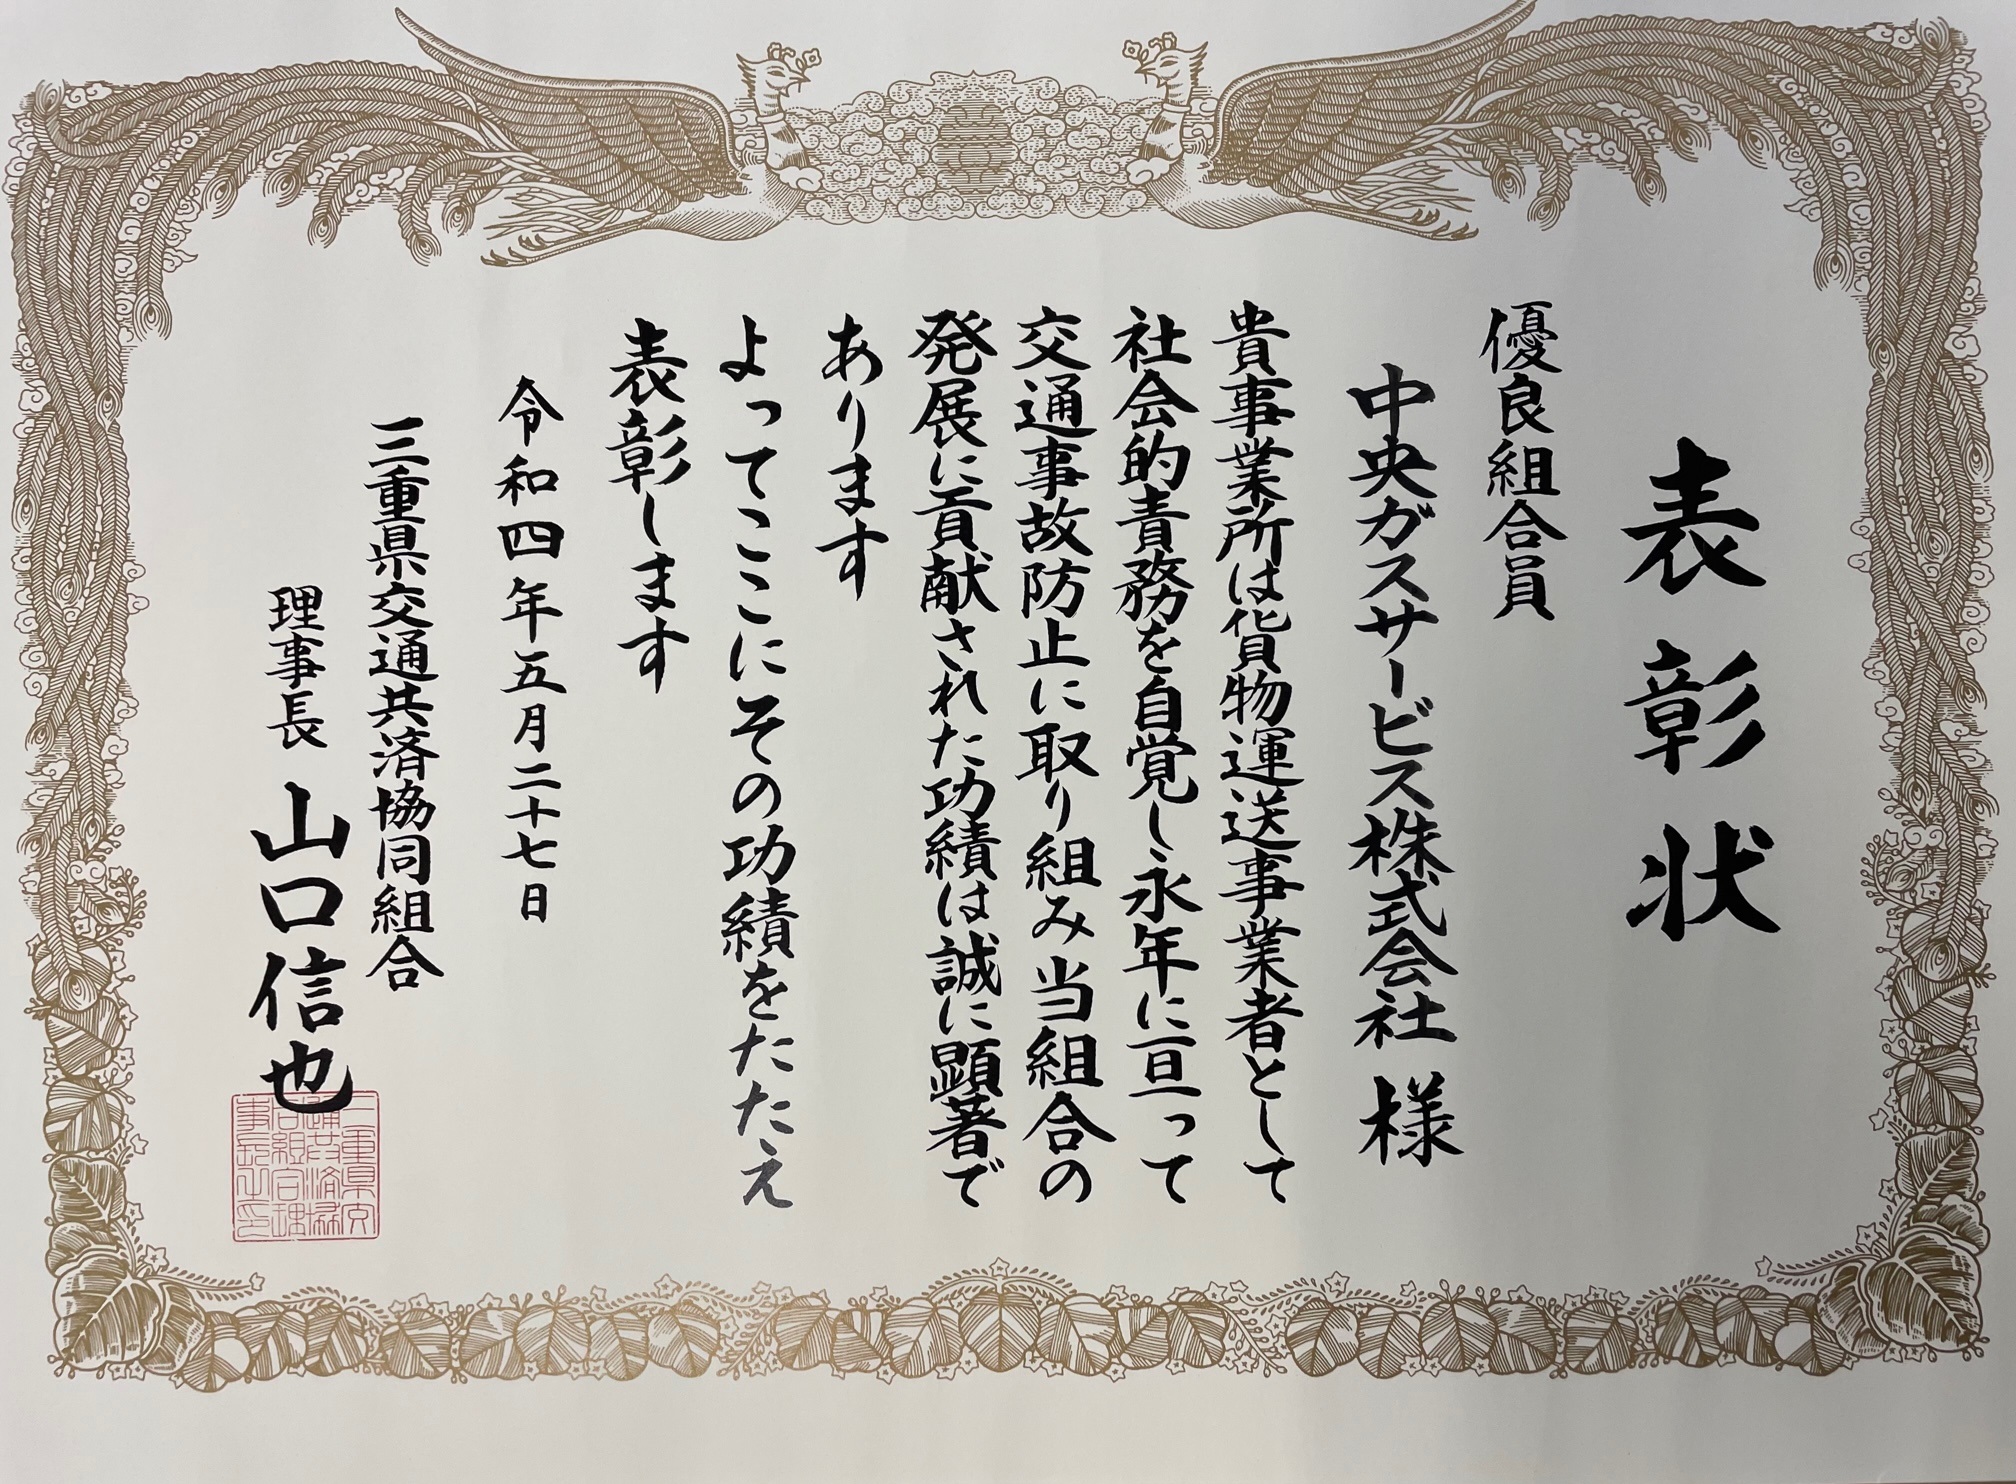 表彰状
優良組合員
中央ガスサービス株式会社 様
貴事業所は貨物運送事業者として
社会的責務を自覚し永年に亘って
交通事故防止に取り組み当組合の
発展に貢献された功績は誠に顕著で
あります
よってここにその功績をたたえ
表彰します
令和四年五月二十七日
三重県交通共済協同組合
理事長 山口信也
三重県交
通共済協
同組合理
事長之印